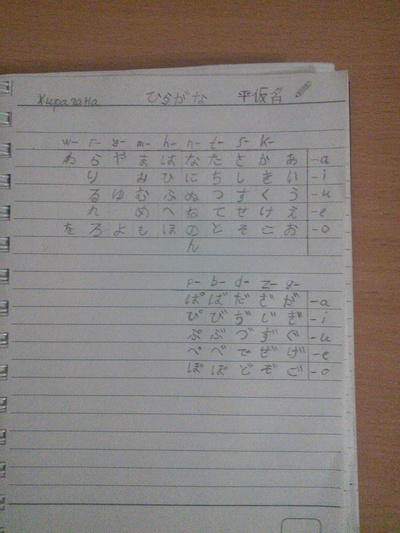 Хирагана ひらがな 平仮名
w- r- y- m- h- n- t- s- k-
わ ら や ま は な た さ か あ -a
り み ひ に ち し き い -i
る ゆ む ふ ぬ つ す く う -u
れ め へ ね て せ け え -e
を ろ よ も ほ の と そ こ お -o
ん
p- b- d- z- g-
ぱ ば だ ざ が -a
ぴ び ぢ じ ぎ -i
ぷ ぶ づ ず ぐ -u
ぺ べ で ぜ げ -e
ぽ ぼ ど ぞ ご -o